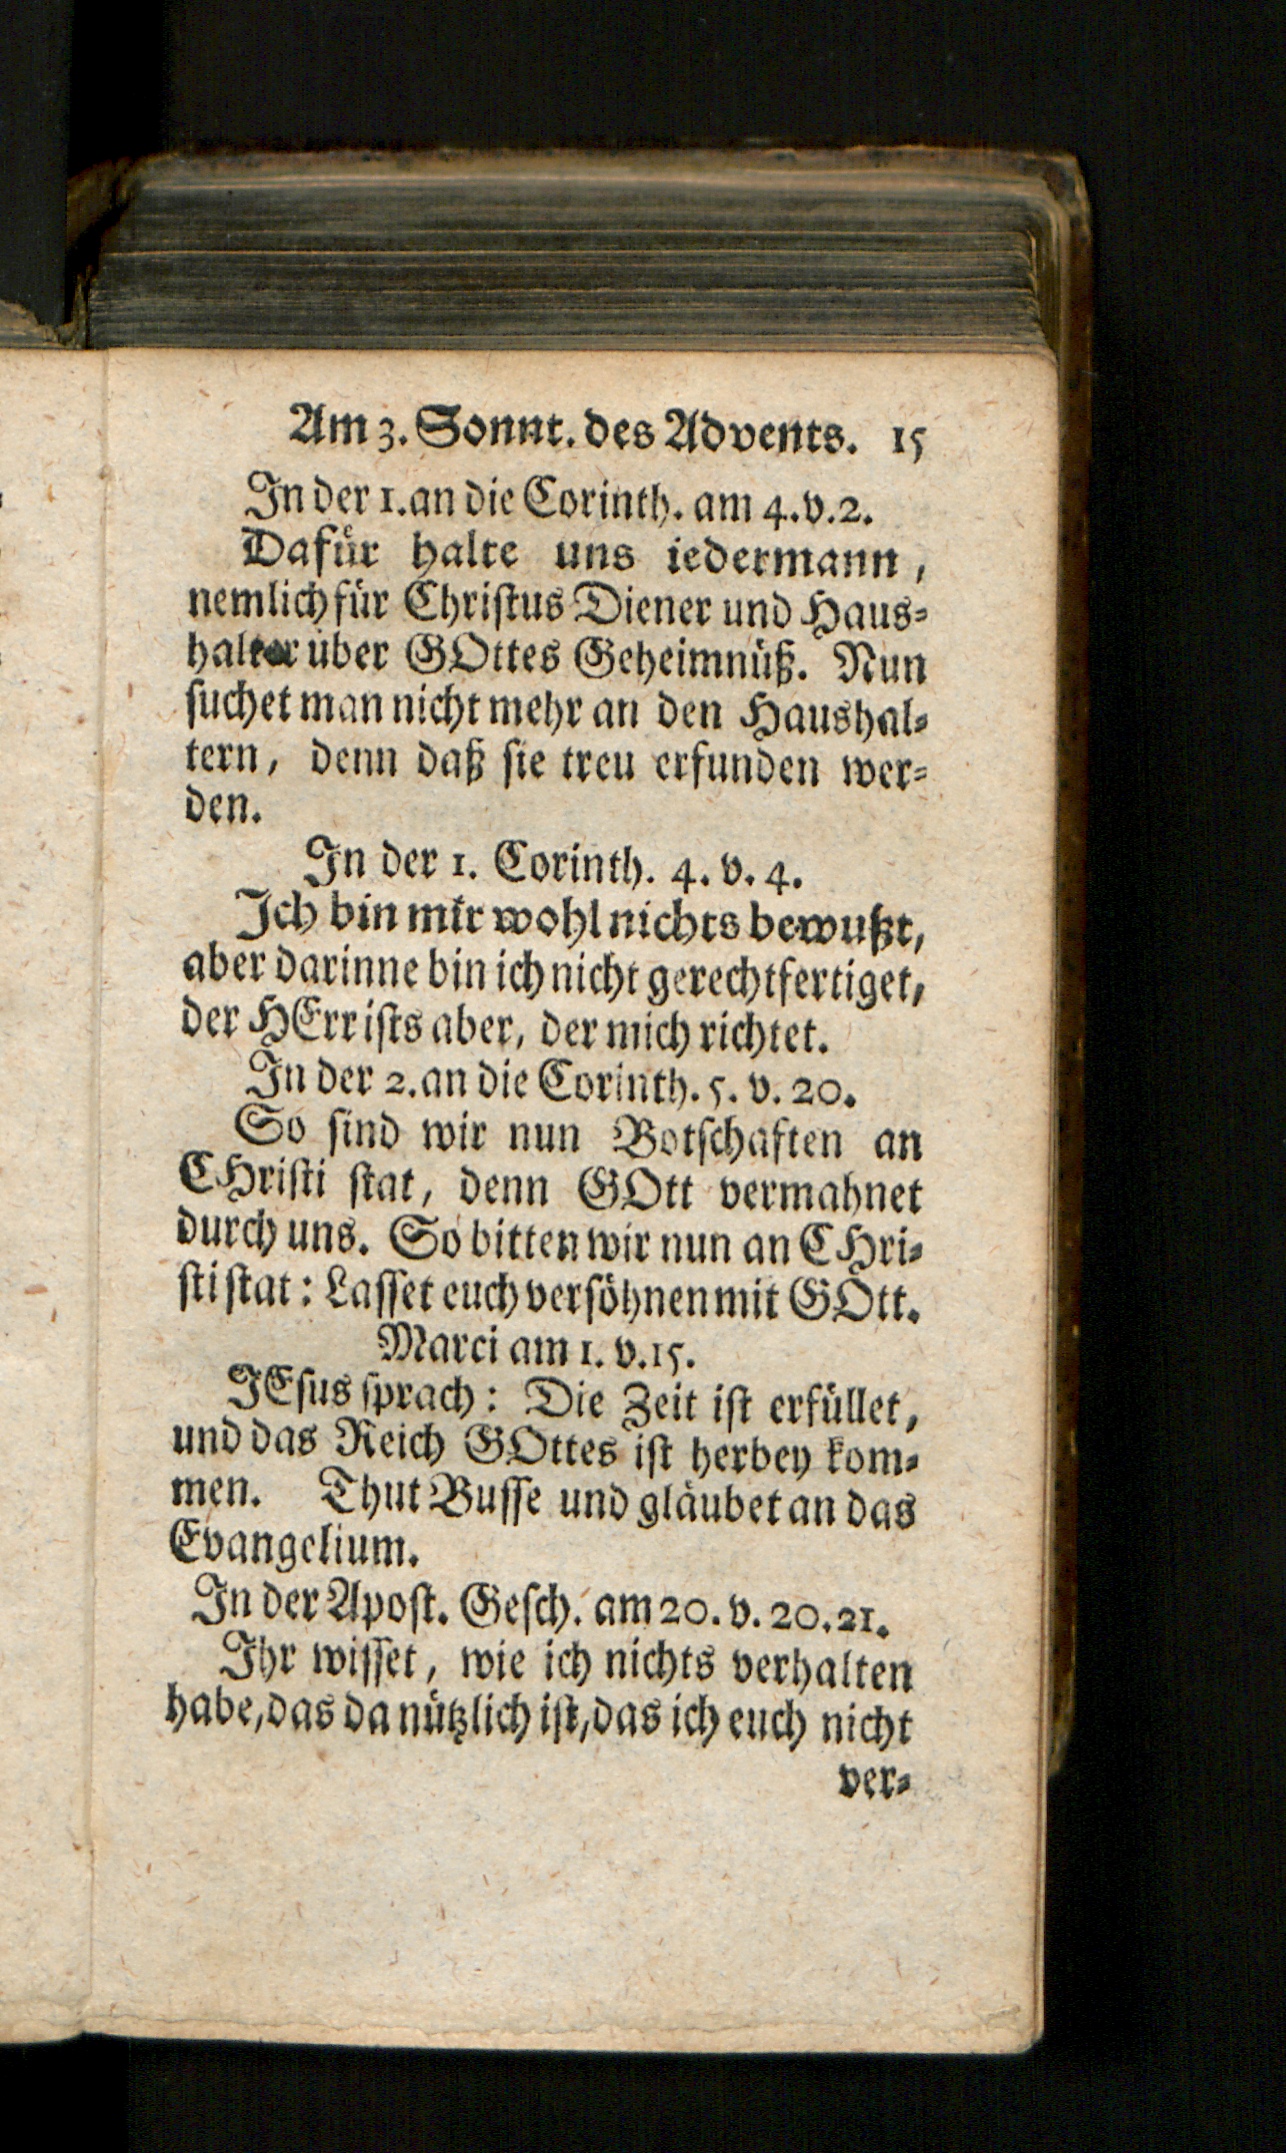 Am 3. Sonnt. des Advents. 15
In der 1. an die Corinth. am 4. v. 2.
Dafür halte uns iedermann,
nemlich für Christus Diener und Haus-
halter über GOttes Geheimnüß. Nun
suchet man nicht mehr an den Haushal-
tern, denn daß sie treu erfunden wer-
den.
In der 1. Corinth. 4. v. 4.
Ich bin mir wohl nichts bewußt,
aber darinne bin ich nicht gerechtfertiget,
der HErr ists aber, der mich richtet.
In der 2. an die Corinth. 5. v. 20.
So sind wir nun Botschaften an
CHristi stat, denn GOtt vermahnet
durch uns. So bitten wir nun an CHri-
sti stat: Lasset euch versöhnen mit GOtt.
Marci am 1. v. 15.
JEsus sprach: Die Zeit ist erfüllet,
und das Reich GOttes ist herbey kom-
men. Thut Busse und gläubet an das
Evangelium.
In der Apost. Gesch. am 20. v. 20. 21.
Ihr wisset, wie ich nichts verhalten
habe, das da nützlich ist, das ich euch nicht
ver-